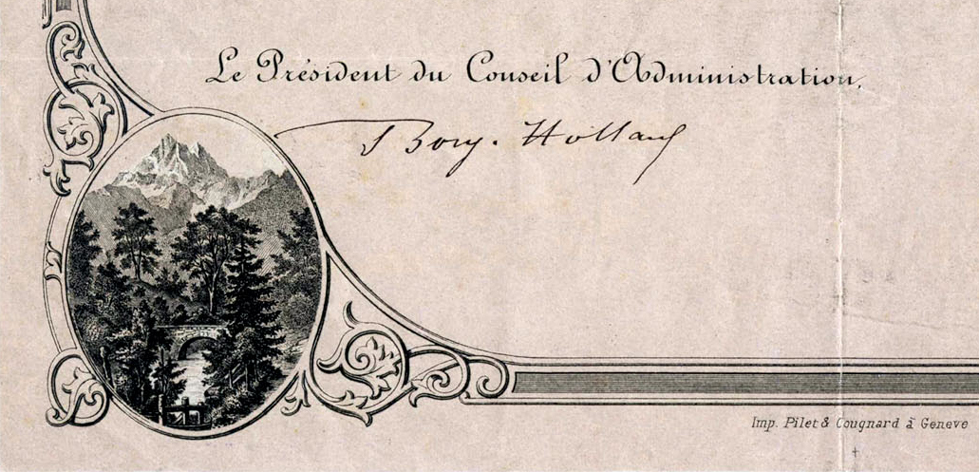 Le Président du Conseil d'Administration,
Bory. Holland
Imp. Pilet & Cougnard à Geneve